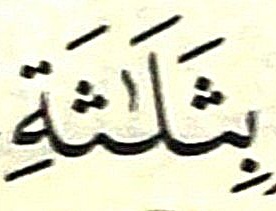 بِثَلَٰثَةِ